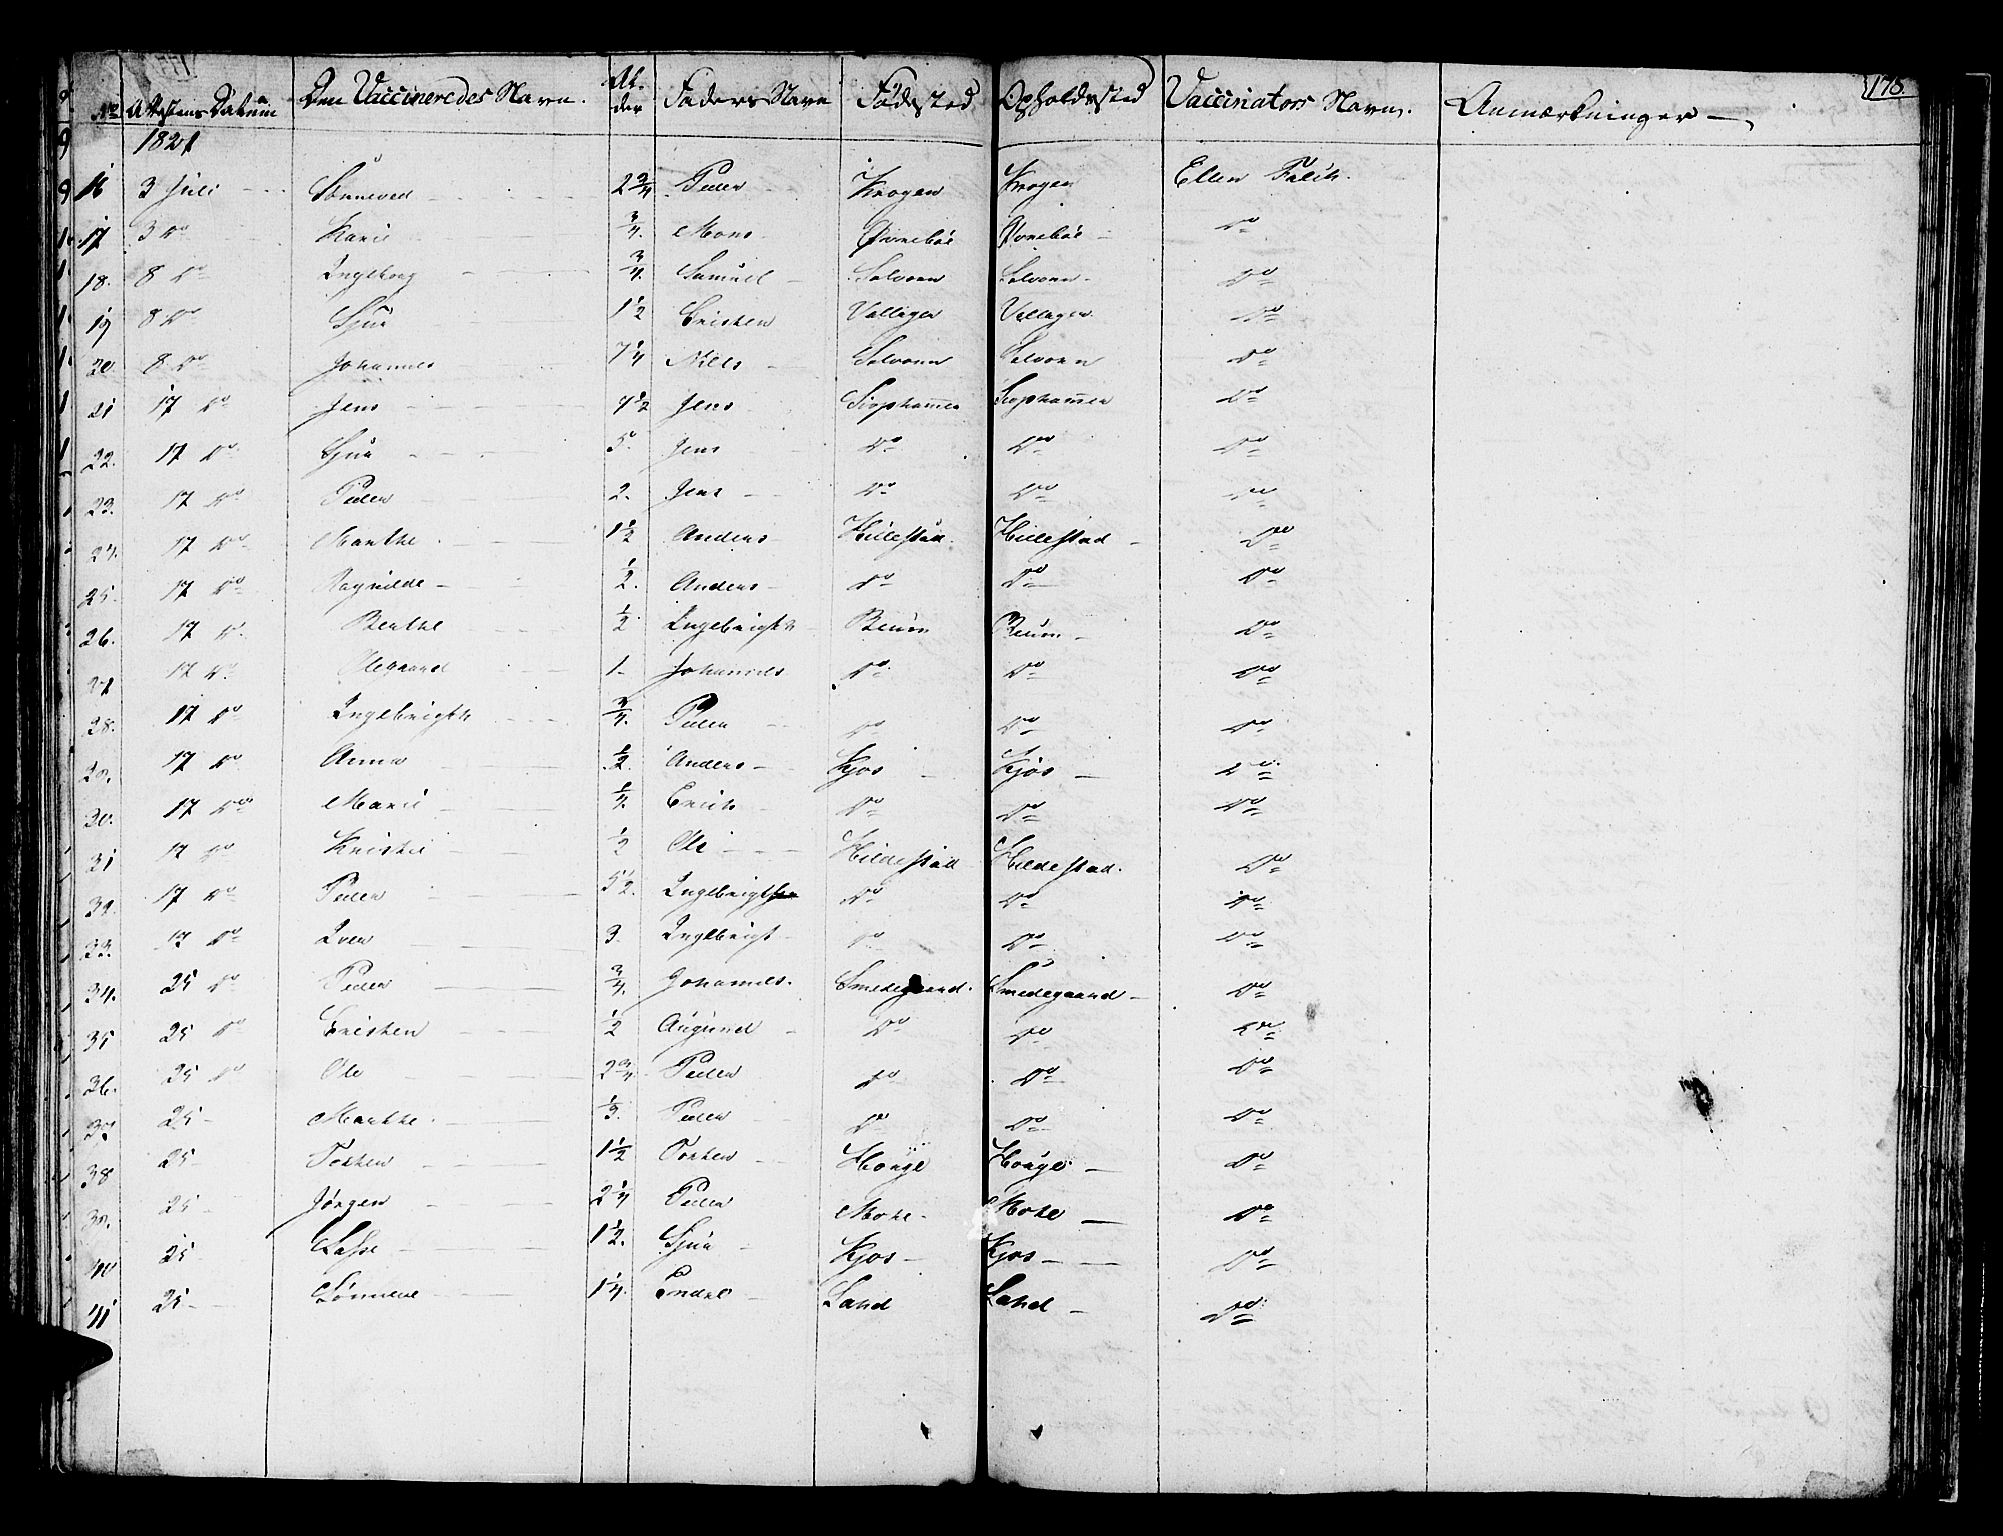 178.
No Attestens Datum Den Vaccineredes Navn. Alder Faders Navn Fødested Opholdssted Vaccinators Navn. Anmærkninger
1821
16 3 Juli Sönneved 2 3/4 Peder Krogen Krogen Ellen
17 3 do Kari 3/4 Mons do
18. 8 do Ingeborg 3/4 Samuel Solvorn Solvorn do
19 8 do Sjur 1 1/2 Cristen do
20. 8 do Johannes 7 1/4 Niels Solvorn Solvorn do
21 17 do Jens 4 1/2 Jens do
22. 17 do Sjur 5 Jens do do do
23. 17 do Peder 2. Jens do do do
24. 17 do Marthe 1 1/2 Anders Hillestad Hillestad do
25. 17 do Ragnilde 1/2. Anders do do do
26. 17 do Berthe 1/2 Ingebrigt do
27 17 do Olegaard 1 Johannes do do do
28. 17 do Ingebrigt 3/4. Peder do do do
29. 17 do Anna 1/2. Anders Kjos Kjos do
30. 17 do Marie 1/4. Erich do do do
31 17 do Kristi 1/2 Ole Hildestad Hildestad. do
32. 17 do Peder 5 1/2. Ingebrigt do do do
33. 17 do Iver 3. Ingebrigt do do do
34. 25 do Peder 3/4. Johannes. Smedegaard. Smedegaard do
35 25 do Cristen 1/2 Augund do do do
36. 25 do Ole 2 3/4 Peder do do do
37. 25 Marthe. 1/3. Peder do do do
38 25 Torsten 1 1/2 Torsten Houge Houge do
39. 25 Jörgen 2 1/4 Peder Mohe Mohe do
40 25 Lasse 1 1/2. Sjur Kjos Kjos do
41 25 Sönneve 1 1/4. Endre do